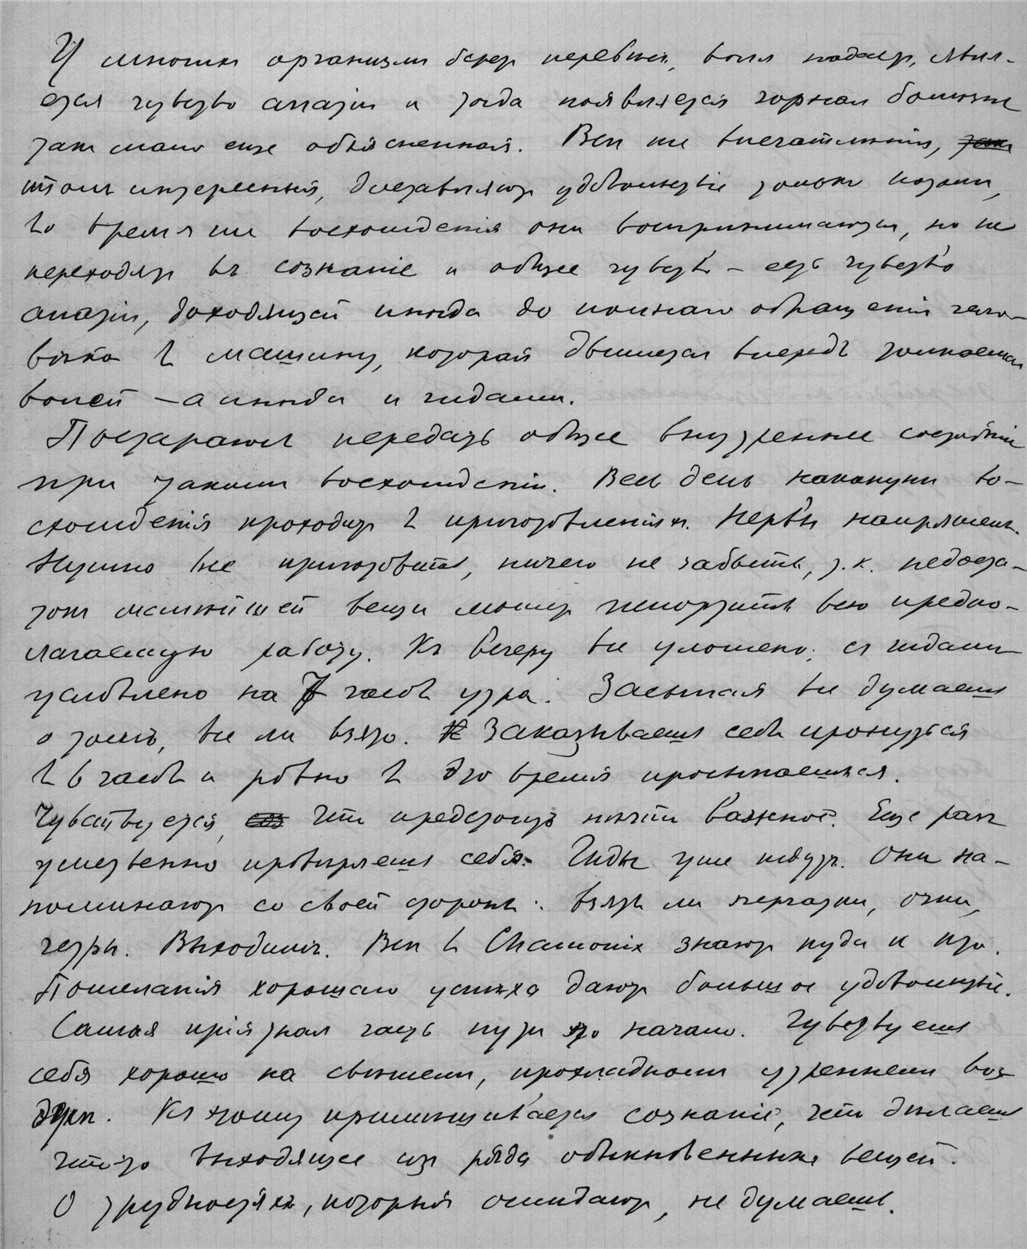 У многих организм берет перевес, воля падает, явля-
ется чувство апатии и тогда появляется горная болезнь
так мало еще объясненная. Все те впечатлѣнія,
столь интересныя, доставляют удовольствіе только потом,
Во время же восхожденія они воспринимаются, но не
переходят въ сознаніе и общее чувство – есть чувство
апатіи, доходящей иногда до полнаго обращенія чело-
вѣка в машину, которая движется впередъ толкаемая
волей – а иногда и гидами.
Постараюсь передать общее внутреннее состояніе
при таком восхожденіи. Весь день накануне во-
схожденія проходит в приготовленіях. Нервы напряжены.
Нужно все приготовить, ничего не забыть, т.к. недоста-
ток малѣйшей вещи может испортить всю предпо-
лагаемую работу. Къ вечеру все уложено; съ гидами
условлено на 7 часов утра. Засыпая все думаешь
о том, все ли взято. Заказываешь себе проснуться
в 6 часов и ровно в это время просыпаешься.
Чувствуется, что предстоит нѣчто важное. Еще раз
умственно провѣряешь себя. Гиды уже ждут. Они на-
поминают со своей стороны: взяты ли перчатки, очки,
гетры. Выходим. Все в Chamonix знают куда и кто.
Пожеланія хорошаго успѣха дают большое удовольствіе.
Самая пріятная часть пути это начало. Чувствуешь
себя хорошо на свежем, прохладном утреннем воз-
духе. Къ тому примешивается сознаніе, что дѣлаешь
что-то выходящее из ряда обыкновенных вещей.
О трудностях, которыя ожидают, не думаешь.